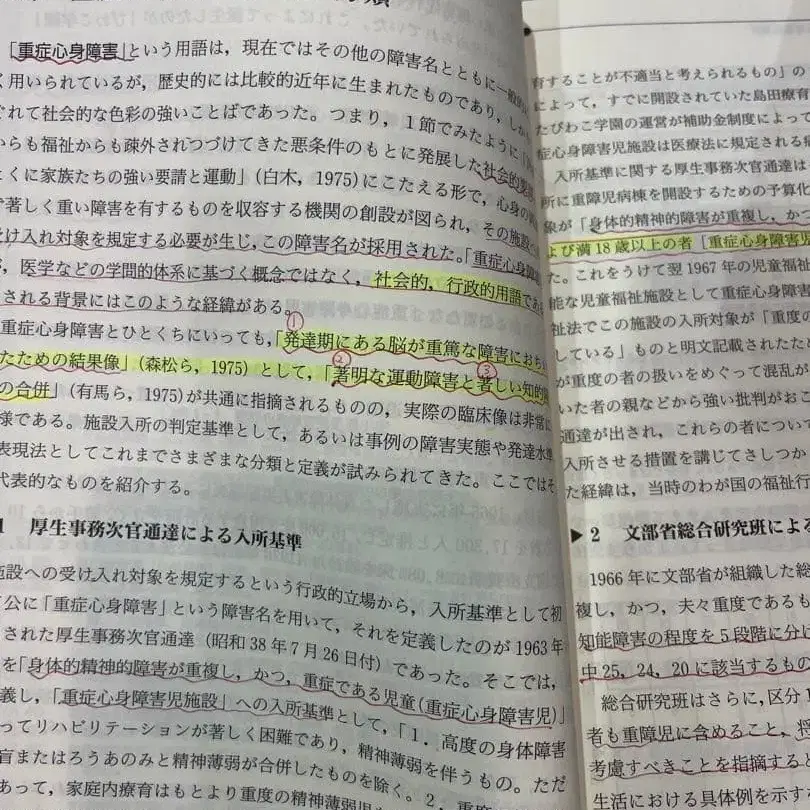 「重症心身障害」という用語は，現在ではその他の障害名とともに一般的に
く用いられているが，歴史的には比較的近年に生まれたものであり，しかも
ぐれて社会的な色彩の強いことばであった。つまり，1節でみたように「
からも福祉からも疎外されつづけてきた悪条件のもとに発展した社会的
とくに家族たちの強い要請と運動」（白木，1975）にこたえる形で，心身の
で著しく重い障害を有するものを収容する機関の創設が図られ，その施設
受け入れ対象を規定する必要が生じ，この障害名が採用された。「重症心身障害
が，医学などの学問的体系に基づく概念ではなく，社会的，行政的用語である
される背景にはこのような経緯がある。
重症心身障害とひとくちにいっても，「発達期にある脳が重篤な障害におち
① ② ③
たための結果像」（森松ら，1975）として，「著明な運動障害と著しい知的
の合併」（有馬ら，1975）が共通に指摘されるものの，実際の臨床像は非常に
様である。施設入所の判定基準として，あるいは事例の障害実態や発達水準
表現法としてこれまでさまざまな分類と定義が試みられてきた。ここではそ
代表的なものを紹介する。
1 厚生事務次官通達による入所基準
施設への受け入れ対象を規定するという行政的立場から，入所基準として初
公に「重症心身障害」という障害名を用いて，それを定義したのが1963年
された厚生事務次官通達（昭和38年7月26日付）であった。そこでは，
を「身体的精神的障害が重複し，かつ，重症である児童（重症心身障害児）」
義し，「重症心身障害児施設」への入所基準として，「1．高度の身体障害
ってリハビリテーションが著しく困難であり，精神薄弱を伴うもの。ただ
盲またはろうあのみと精神薄弱が合併したものを除く。2．重度
あって，家庭内療育はもとより重度の精神薄弱児
育することが不適当と考えられるもの」の
によって，すでに開設されていた島田療育
たびわこ学園の運営が補助金制度によって
症心身障害児施設は医療法に規定される病
入所基準に関する厚生事務次官通達は
所に重障児病棟を開設するための予算化
象が「身体的精神的障害が重複し，かつ
よび満18歳以上の者［重症心身障害児
た。これをうけて翌1967年の児童福祉
能な児童福祉施設として重症心身障害
祉法でこの施設の入所対象が「重度の
している」ものと明文記載されたため
が重度の者の扱いをめぐって混乱が
いた者の親などから強い批判がおこ
通達が出され，これらの者について
入所させる措置を講じてさしつか
た経緯は，当時のわが国の福祉行
▶2 文部省総合研究班による
1966年に文部省が組織した総
複し，かつ，夫々重度であるも
知能障害の程度を5段階に分け
中25，24，20に該当するもの
総合研究班はさらに，区分1
者も重障児に含めること，将
考慮すべきことを指摘すると
生活における具体例を示す